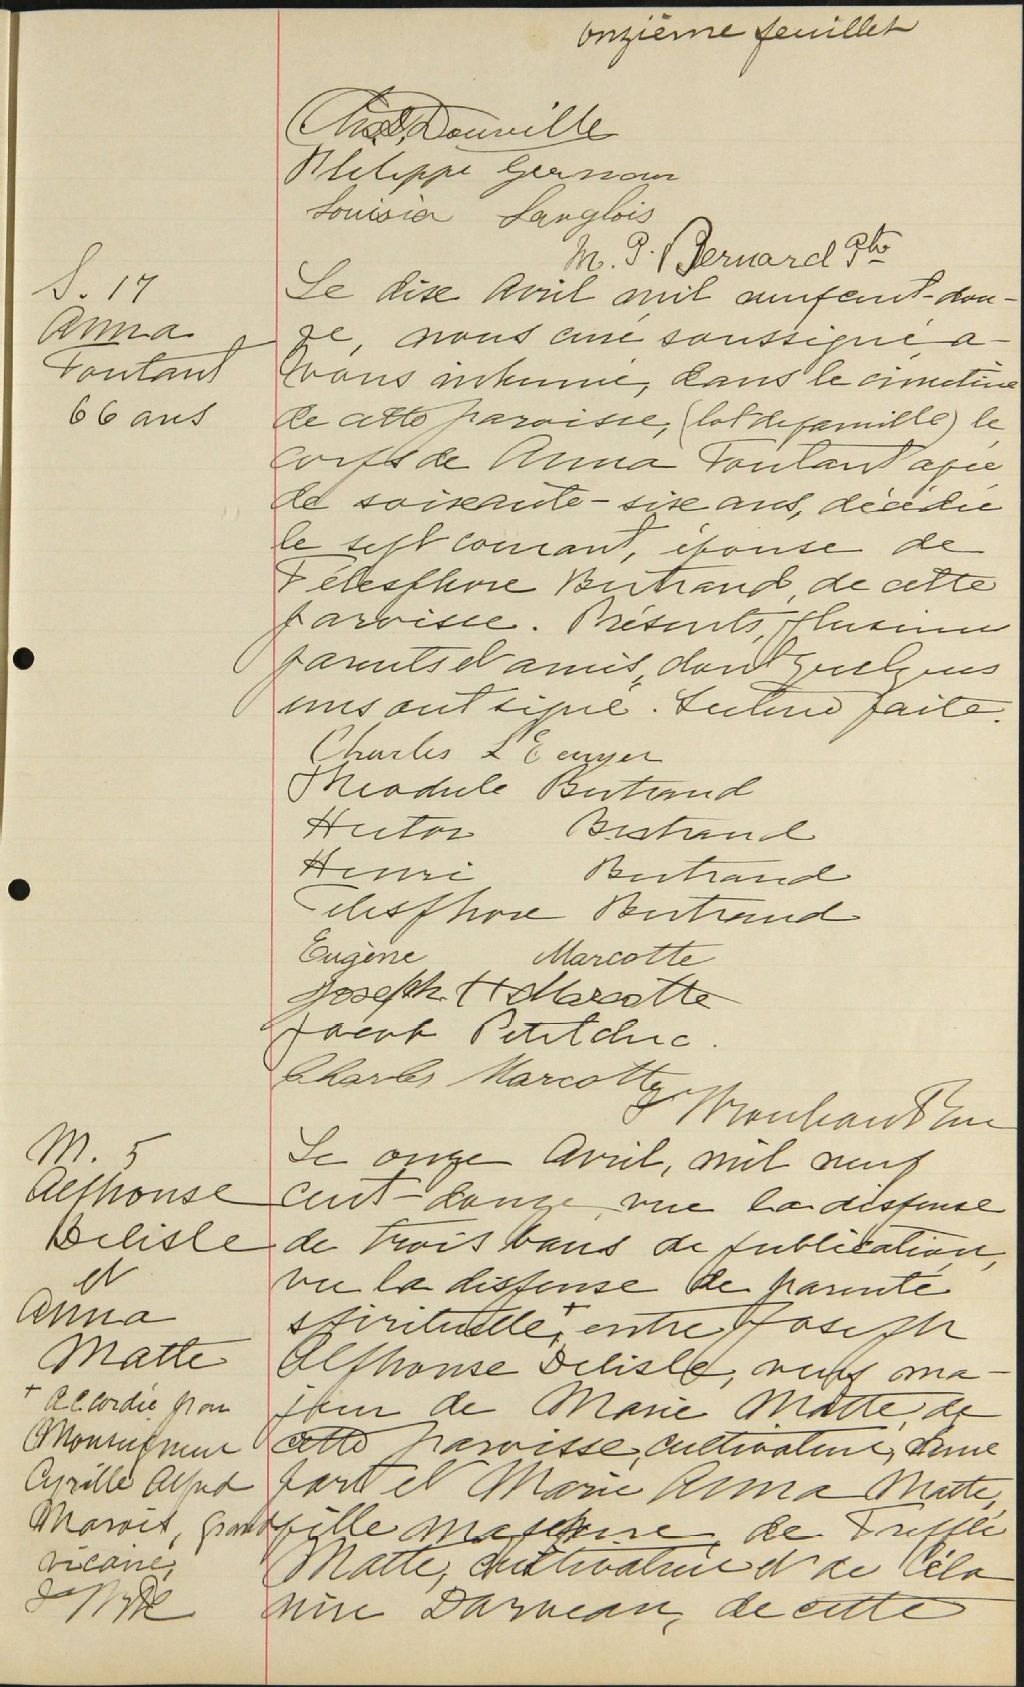 onzième feuillet
Chs. D. Douville
Philippe Germain
Louisia Langlois
M. P. Bernard Ptre
S. 17
Anna
Toutant
66 ans
Le dix Avril mil neuf cent-dou-
ze, nous curé soussigné, a-
vons inhumé, dans le cimetière
de cette paroisse, (lot de famille) le
corps de Anna Toutant agée
de soixante-six ans, décédée
le sept courant, épouse de
Télesphore Bertrand, de cette
paroisse. Présents, plusieurs
parents et amis, dont quelques
uns ont signé. Lecture faite.
Charles L'Ecuyer
Théodule Bertrand
Hector Bertrand
Henri Bertrand
Télesphore Bertrand
Eugène Marcotte
Joseph H Marcotte
Jacob Petitclerc.
Charles Marcotte
M. 5
Alphonse
Delisle
et
Anna
Matte
+ accordée par
Monseigneur
Cyrille Alfred
Marois, grand
vicaire,
Le onze Avril, mil neuf
cent-douze, vue la dispense
de trois bans de publication,
vu la dispense de parenté
spirituelle,+ entre Joseph
Alphonse Delisle, veuf ma-
jeur de Marie Matte, de
cette paroisse, cultivateur, d'une
part et Marie Anna Matte,
fille majeure de Trefflé
Matte, cultivateur et de Céla-
nire Darveau, de cette